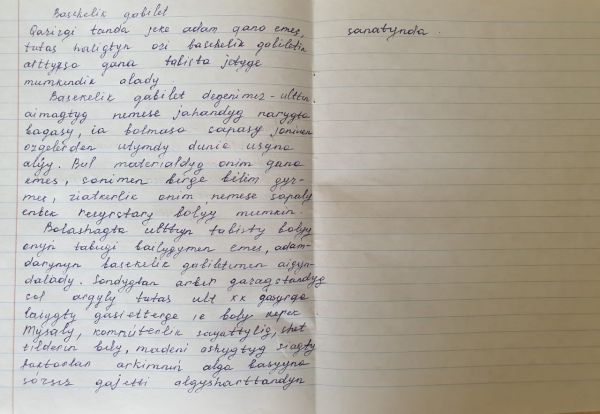 Basekelik gabilet
Qazirgi tanda jeke adam gana emes,
tutas haligtyn ozi basekelik gabiletin
arttyrsa gana tabista jetyge
mumkindik alady.
Basekelik gabilet degenimez - ulttin
aimagtyg nemese jahandyg narygta
bagasy, ia bolmasa sapasy joninen
ozgelerden utymdy dunie usyna
alyy. Bul materialdyg onim gana
emes, sonimen birge bilim gyz-
met, ziatkerlik onim nemese sapaly
enbek resyrstary bolyy mumkin.
Bolashagta ulttyn tabisty bolyy
onyn tabugi bailygymen emes, adam-
darynyn basekelik gabiletimen aigyn-
dalady. Sondygtan arbir gazagstandyg
sol argyly tutas ult xx gasyrga
laiygty gasietterge ie boly kerek
Mysaly, kompúterlik sayattylig, shet
tilderin bily, madeni ashygtyg siagty
faktorlar arkimnin alga basyyna
sózsiz gajetti algysharttardyn
sanatynda.